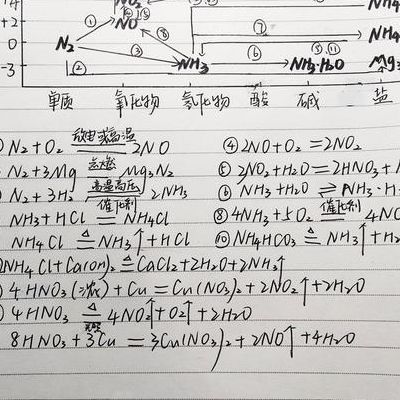 +4 NO₂ NH₄
+2 ① NO ⑦ NH₄
0 N₂ ③ ⑧ ⑥
-3 ② NH₃ NH₃·H₂O Mg₃
单质 氧化物 氢化物 酸 碱 盐
N₂+O₂ 放电或高温 2NO ④ 2NO+O₂=2NO₂
N₂+3Mg 点燃 Mg₃N₂ ⑤ 2NO₂+H₂O=2HNO₃+
N₂+3H₂ 高温高压 催化剂 2NH₃ ⑥ NH₃+H₂O⇌NH₃·H
NH₃+HCl=NH₄Cl ⑧ 4NH₃+5O₂ 催化剂 4NO
NH₄Cl ≜ NH₃↑+HCl ⑩ NH₄HCO₃ ≜ NH₃↑+H₂
2NH₄Cl+Ca(OH)₂ ≜ CaCl₂+2H₂O+2NH₃↑
4HNO₃(浓)+Cu=Cu(NO₃)₂+2NO₂↑+2H₂O
4HNO₃ ≜ 4NO₂↑+O₂↑+2H₂O
8HNO₃+3Cu=3Cu(NO₃)₂+2NO↑+4H₂O